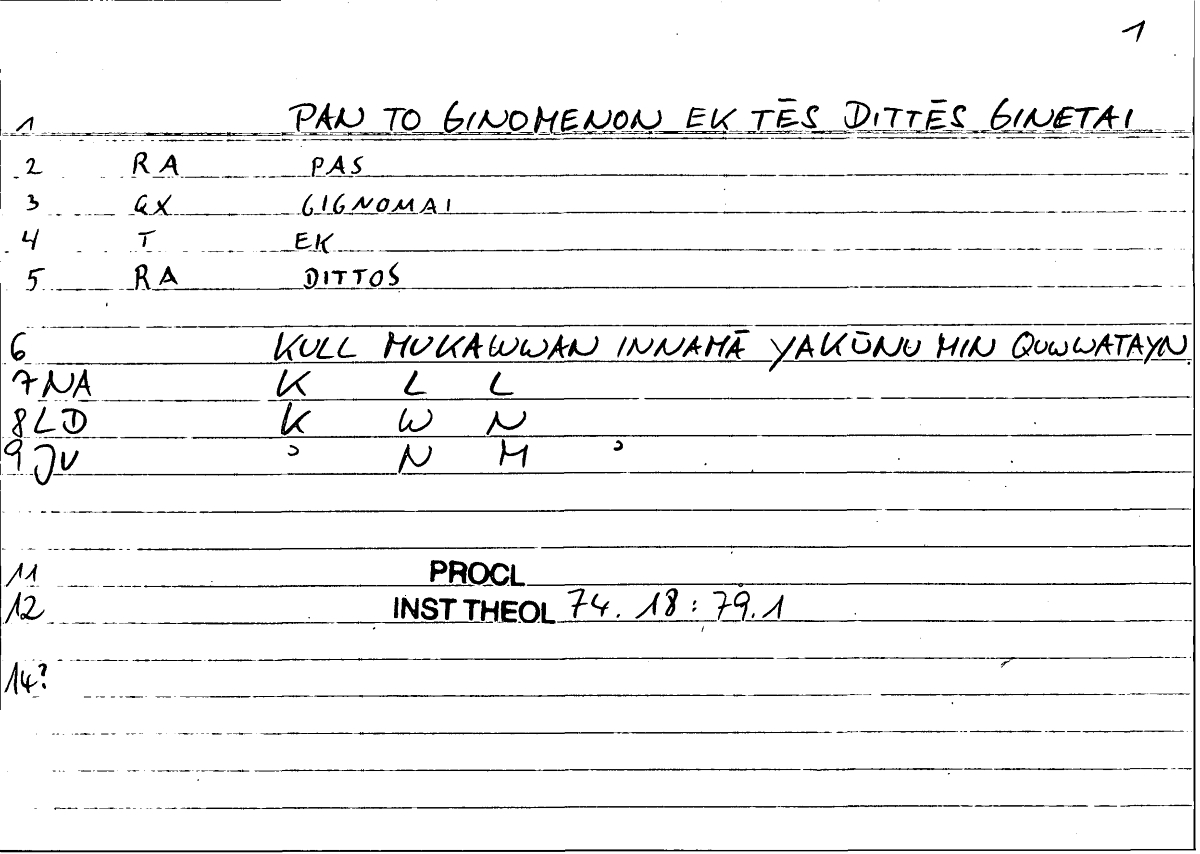 1
1 PAN TO GINOMENON EK TĒS DITTĒS GINETAI
2 RA PAS
3 GX GIGNOMAI
4 T EK
5 RA DITTOS
6 KULL MUKAWWAN INNAMĀ YAKŪNU MIN QUWWATAYN
7 NA K L L
8 LD K W N
9 JV ʾ N M ʾ
11 PROCL
12 INST THEOL 74. 18 : 79.1
14?